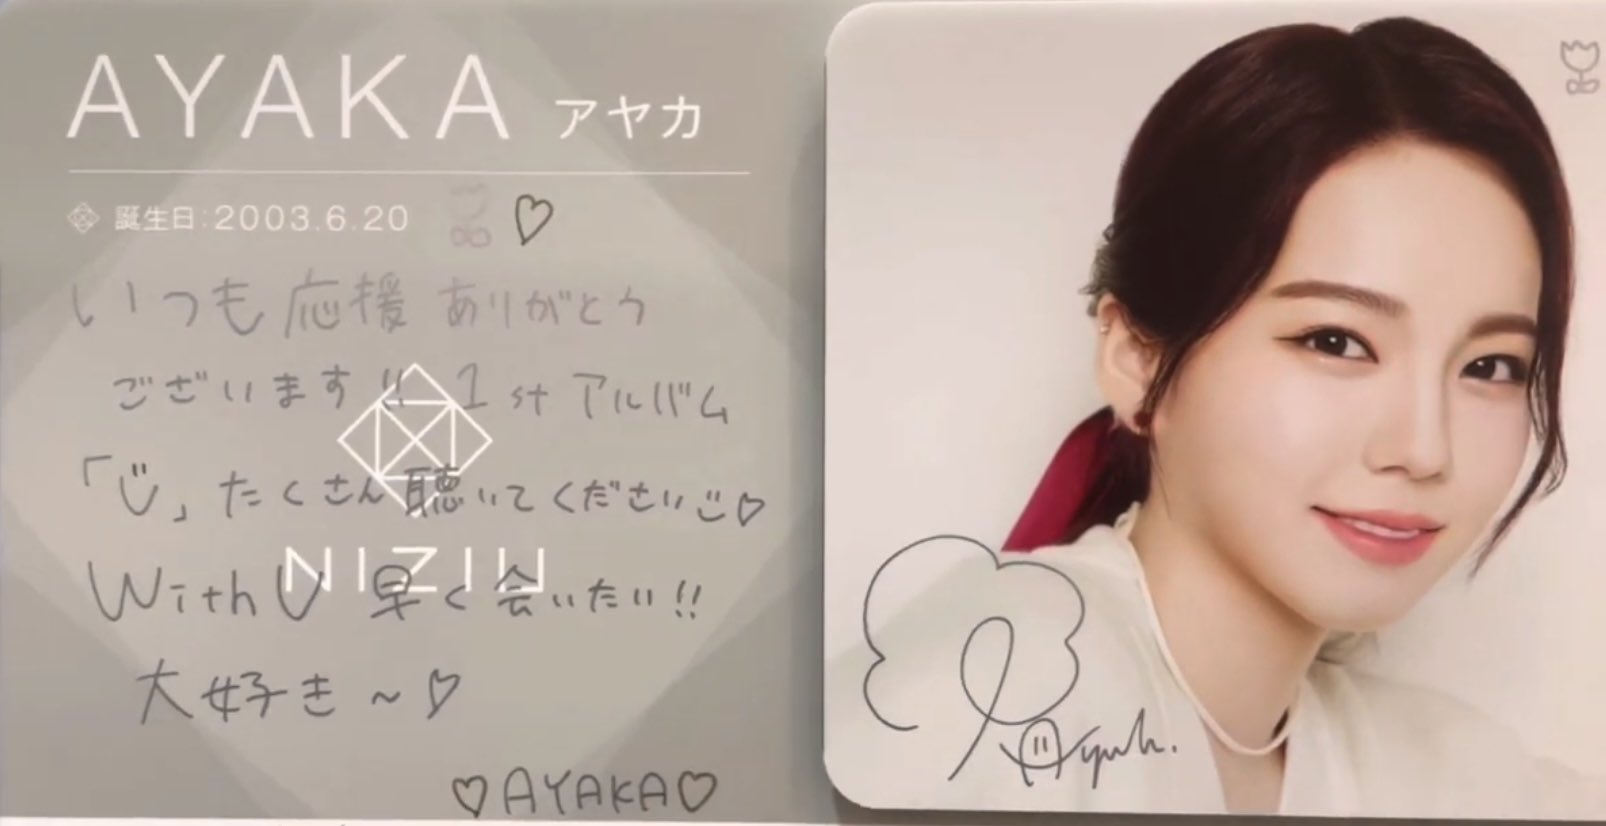 AYAKA アヤカ
誕生日:2003.6.20 ♡
いつも応援 ありがとう
ございます!! 1st アルバム
「U」たくさん聴いてください♡
NIZIU
WithU 早く会いたい!!
大好き~♡
♡AYAKA♡